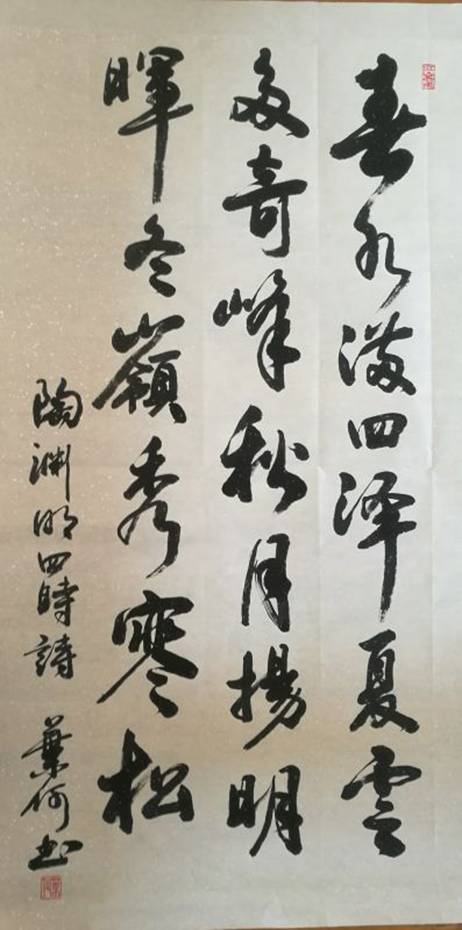 春水滿四泽夏雲
多奇峰秋月揚明
暉冬嶺秀寒松
陶渊明四時詩 葉何书